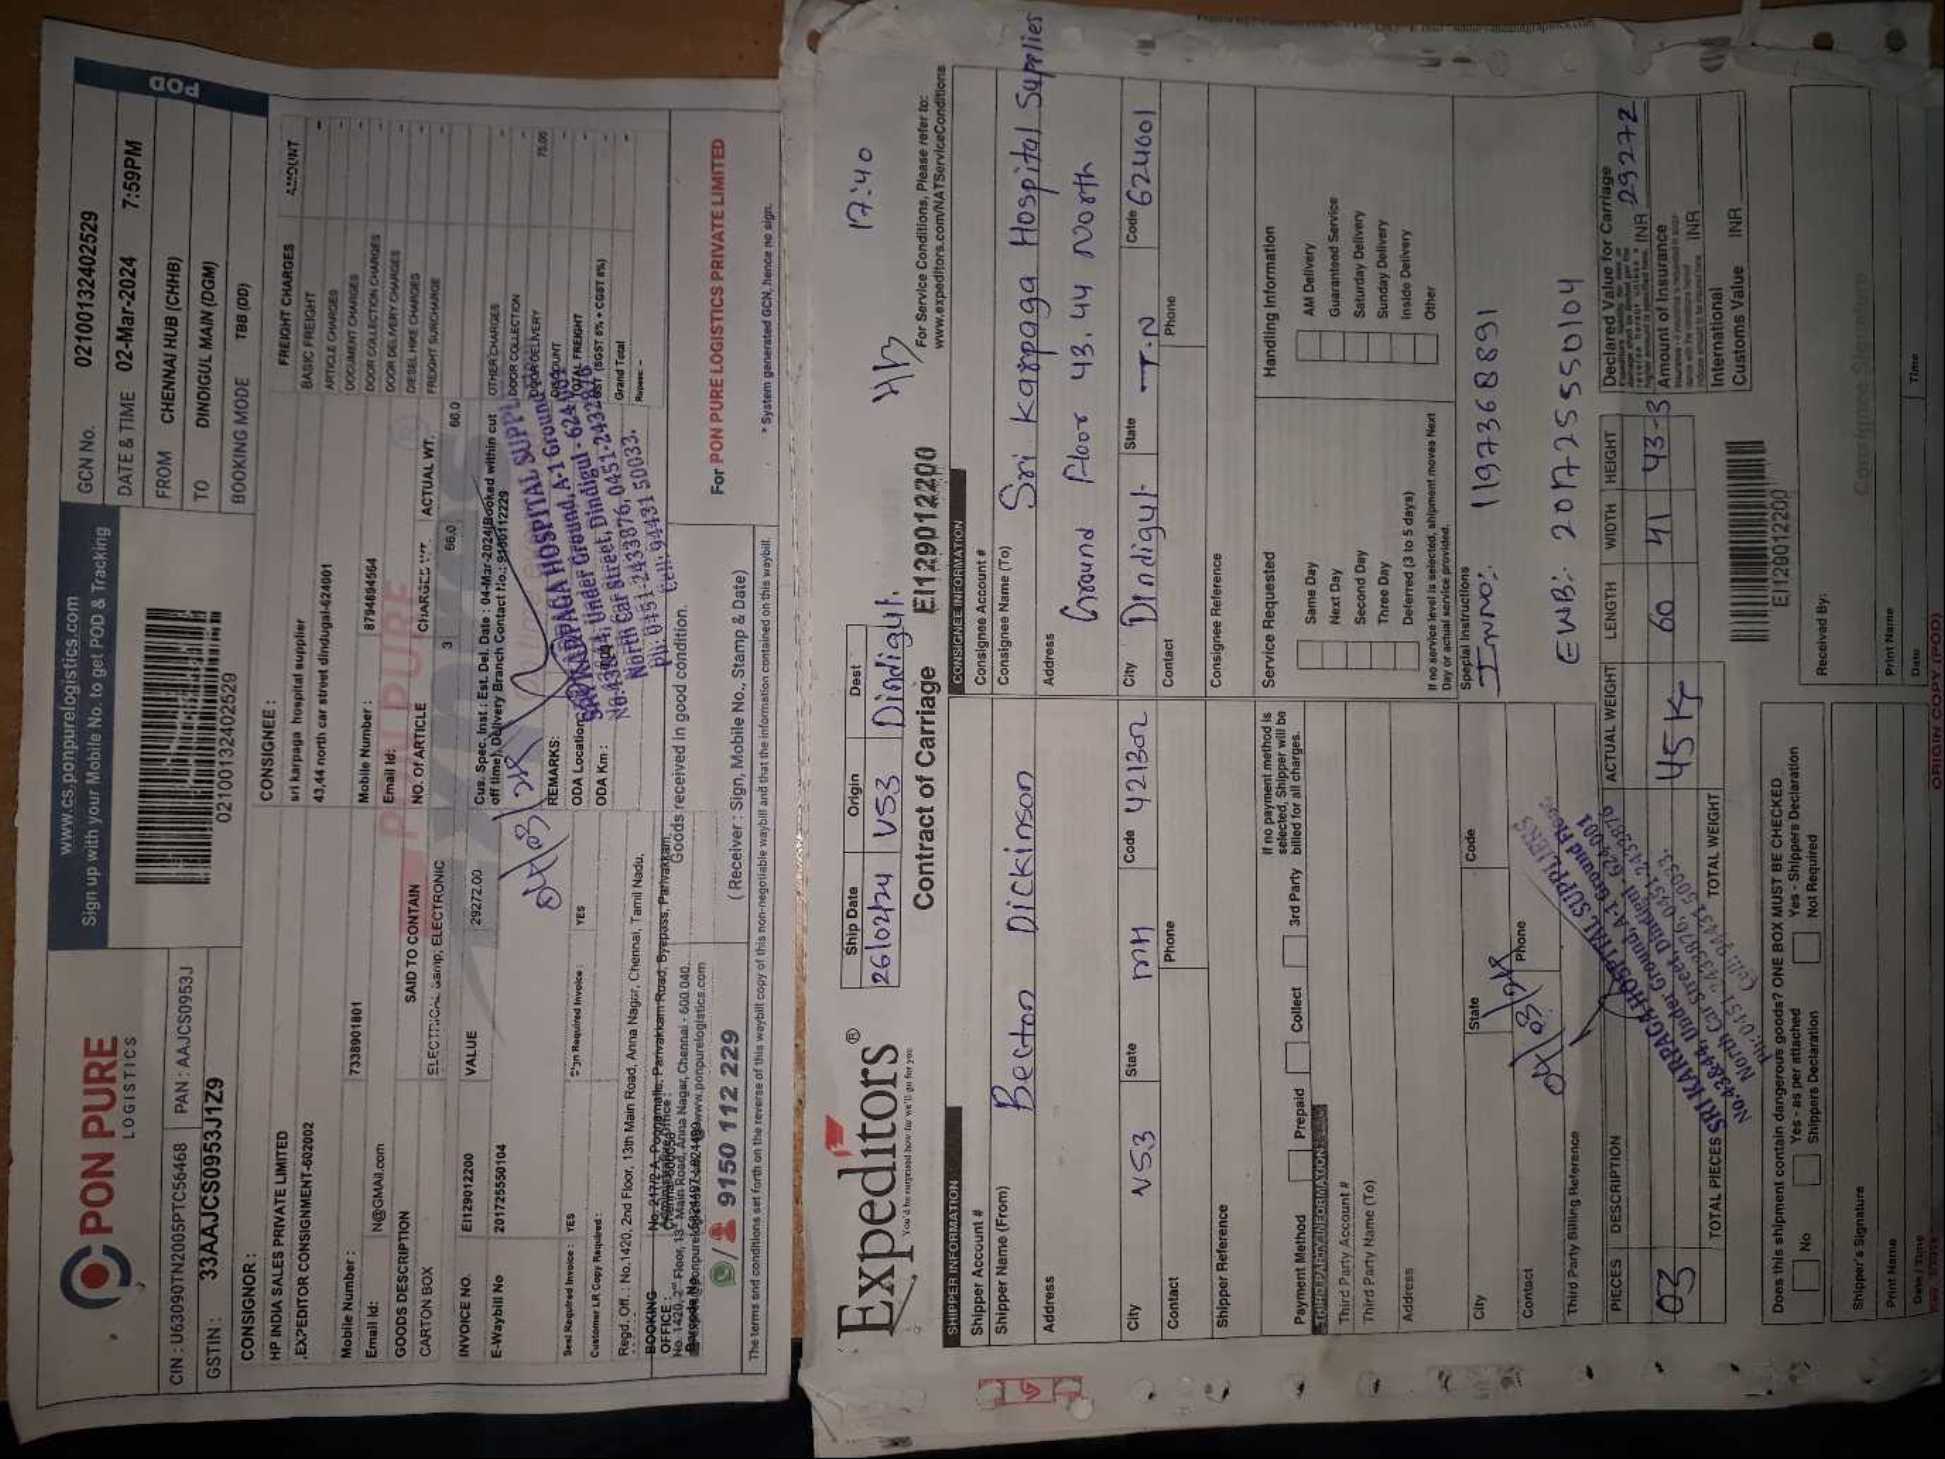 PON PURE
LOGISTICS
www.cs.ponpurelogistics.com
Sign up with your Mobile No. to get POD & Tracking
POD
CIN : U63090TN2005PTC56468 PAN : AAJCS0953J
GSTIN : 33AAJCS0953J1Z9
0210013242402529
GCN No. 0210013242402529
DATE & TIME 02-Mar-2024 7:59PM
FROM CHENNAI HUB (CHHB)
TO DINDIGUL MAIN (DGM)
BOOKING MODE TBB (DD)
CONSIGNOR :
HP INDIA SALES PRIVATE LIMITED
.EXPEDITOR CONSIGNMENT-602002
Mobile Number : 7338901801
Email Id: N@GMail.com
CONSIGNEE :
sri karpaga hospital supplier
43,44 north car street dindugal-624001
Mobile Number : 8794694564
Email Id:
GOODS DESCRIPTION SAID TO CONTAIN NO. Of ARTICLE CHARGED WT. ACTUAL WT.
CARTON BOX ELECTRICAL &amp; ELECTRONIC 3 66.0 66.0
INVOICE NO. EI129012200 VALUE 29272.00
E-Waybill No 201725550104
Cus. Spec. Inst : Est. Del. Date : 04-Mar-2024(Booked within cut
off time) Delivery Branch Contact No.: 9150112229
04/3/24
REMARKS:
ODA Location
ODA Km :
Seal Required Invoice : YES Sign Required Invoice : YES
Customer LR Copy Required :
FREIGHT CHARGES AMOUNT
BASIC FREIGHT -
ARTICLE CHARGES -
DOCUMENT CHARGES -
DOOR COLLECTION CHARGES -
DOOR DELIVERY CHARGES -
DIESEL HIKE CHARGES -
FREIGHT SURCHARGE -
OTHER CHARGES -
DOOR COLLECTION -
DOOR DELIVERY 75.00
DISCOUNT -
TOTAL FREIGHT -
GST (SGST 6% + CGST 6%) -
Grand Total -
Rupees: -
SRI KARPAGA HOSPITAL SUPPLIERS
No.43&44, Under Ground, A-1 Ground Floor
North Car Street, Dindigul - 624 001
Ph: 0451-2433876, 0451-2432876
Cell: 94431 50033.
Regd. Off. : No.1420, 2nd Floor, 13th Main Road, Anna Nagar, Chennai, Tamil Nadu,
BOOKING OFFICE :
9150 112 229
Goods received in good condition.
( Receiver : Sign, Mobile No., Stamp & Date)
For PON PURE LOGISTICS PRIVATE LIMITED
* System generated GCN, hence no sign.
The terms and conditions set forth on the reverse of this waybill copy of this non-negotiable waybill and that the information contained on this waybill.
Expeditors®
You'd be surprised how far we'll go for you
Ship Date Origin Dest
26/02/24 VS3 Dindigul.
17:40
Contract of Carriage EI129012200
For Service Conditions, Please refer to:
www.expeditors.com/NATServiceConditions
SHIPPER INFORMATION
Shipper Account #
Shipper Name (From) Becton Dickinson
Address
City VS3 State MH Code 421302
Contact Phone
Shipper Reference
CONSIGNEE INFORMATION
Consignee Account #
Consignee Name (To) Sri Karpaga Hospital Supplier
Address Ground Floor 43.44 North
City Dindigul. State T.N Code 624001
Contact Phone
Consignee Reference
Payment Method Prepaid Collect 3rd Party
If no payment method is selected, Shipper will be billed for all charges.
THIRD PARTY INFORMATION
Third Party Account #
Third Party Name (To)
Address
City State Code
Contact Phone
04/3/24
Third Party Billing Reference
Service Requested
Same Day
Next Day
Second Day
Three Day
Deferred (3 to 5 days)
If no service level is selected, shipment moves Next
Day or actual service provided.
Handling Information
AM Delivery
Guaranteed Service
Saturday Delivery
Sunday Delivery
Inside Delivery
Other
Special Instructions
Inv no: 1197368891
EWB: 201725550104
PIECES DESCRIPTION ACTUAL WEIGHT LENGTH WIDTH HEIGHT
03 45 Kg 60 41 43-3
TOTAL PIECES TOTAL WEIGHT
SRI KARPAGA HOSPITAL SUPPLIERS
No.43&44, Under Ground, A-1 Ground Floor
North Car Street, Dindigul - 624 001
Cell: 94431 50033.
Declared Value for Carriage
INR 29272
Amount of Insurance
INR
International
Customs Value INR
EI129012200
Does this shipment contain dangerous goods? ONE BOX MUST BE CHECKED
No
Yes - as per attached Shippers Declaration
Yes - Shippers Declaration Not Required
Shipper's Signature
Print Name
Date / Time
Received By:
Consignee Signature
Print Name
Date Time
ORIGIN COPY (POD)